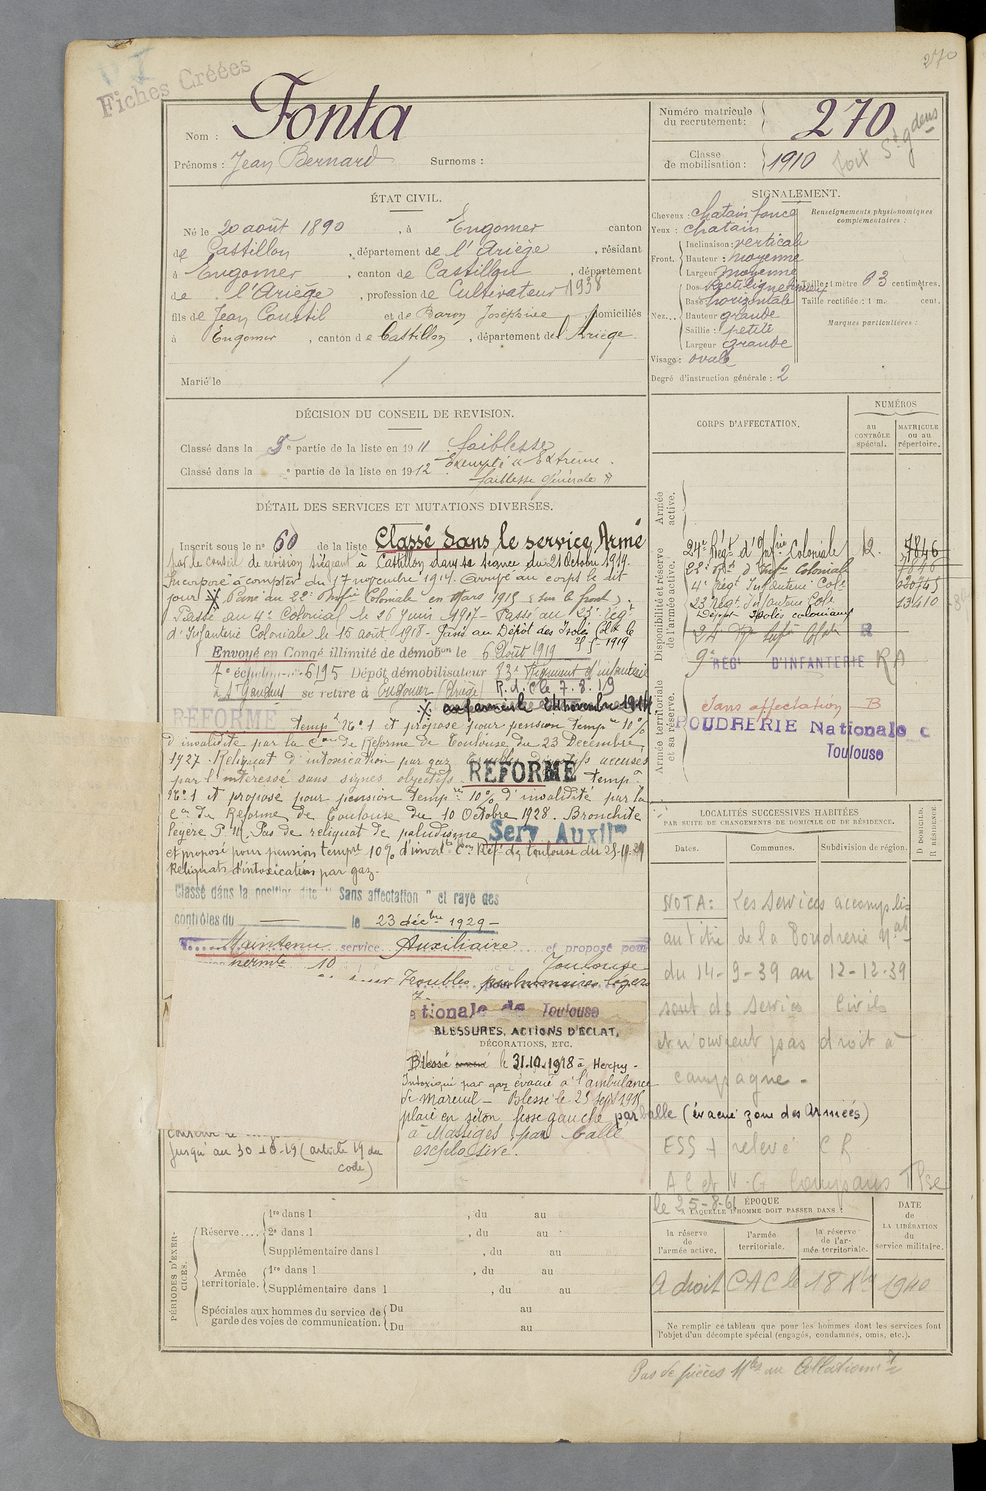 270
Fiches Créées
Nom : Fonta
Prénoms : Jean Bernard Surnoms :
Numéro matricule du recrutement : 270
Classe de mobilisation : 1910
ÉTAT CIVIL.
Né le 20 août 1890, à Engomer canton
de Castillon, département de l'Ariège, résidant
à Engomer, canton de Castillon, département
de l'Ariège, profession de Cultivateur 1938
fils de Jean Courtil et de Baron Joséphine domiciliés
à Engomer, canton de Castillon, département de l'Ariège.
Marié le
SIGNALEMENT.
Cheveux : chatain foncé
Yeux : chatain
Front. Inclinaison : verticale
Hauteur : moyenne
Largeur moyenne
Nez... Dos rectiligne
Base horizontale
Hauteur grande
Saillie : petite
Largeur grande
Visage : ovale
Degré d'instruction générale : 2
Renseignements physionomiques complémentaires :
Taille : 1 mètre 63 centimètres.
Taille rectifiée : 1 m. cent.
Marques particulières :
DÉCISION DU CONSEIL DE REVISION.
Classé dans la 5e partie de la liste en 1911 faiblesse
Classé dans la e partie de la liste en 1912 Exempté
faiblesse générale
DÉTAIL DES SERVICES ET MUTATIONS DIVERSES.
Inscrit sous le n° 60 de la liste Classé dans le service Armé
par le conseil de révision siégeant à Castillon dans sa séance du 21 Octobre 1914.
Incorporé à compter du 17 novembre 1914. Arrivé au corps le dit
jour X Passé au 22e Infie Coloniale en Mars 1915 (sur le front).
Passé au 4e Colonial le 26 Juin 1917. Passé au 23e Régt
d'Infanterie Coloniale le 15 août 1918. Passé au Dépôt des Isolés
Envoyé en Congé illimité de démobon le 6 Août 1919
7e échelon 6195 Dépôt démobilisateur 83e Régiment d'infanterie
à St Gaudens se retire à Engomer (Ariège) R.d.C le 7.8.19
REFORMÉ tempre N° 1 et proposé pour pension tempre 10%
d'invalidité par la Con de Réforme de Toulouse du 23 Décembre
1927. Reliquat d'intoxication par gaz accusés
par l'intéressé sans signes objectifs. REFORMÉ tempre
N° 1 et proposé pour pension tempre 10% d'invalidité par la
Con de Réforme de Toulouse du 10 Octobre 1928. Bronchite
légère Pas de reliquat de paludisme Serv. Auxilre
et proposé pour pension tempre 10% Réf. de Toulouse du
Reliquats d'intoxication par gaz.
Classé dans la position dite " Sans affectation " et rayé des
contrôles du le 23 décbre 1929
Maintenu service Auxiliaire et proposé pour
10 Toulouse
Troubles pulmonaires légers
ationale de Toulouse
BLESSURES, ACTIONS D'ÉCLAT,
DÉCORATIONS, ETC.
Blessé le 31.10.1918 à Herpy -
Intoxiqué par gaz évacué à l'ambulance
de Mareuil - Blessé le 25 Sept 1915
plaie en séton fesse gauche par balle (évacué zone des Armées)
à Massiges par balle
explosive.
jusqu'au 30 (article 19 du
code)
CORPS D'AFFECTATION.
NUMÉROS
au CONTRÔLE spécial.
MATRICULE ou au répertoire.
Armée active.
Disponibilité et réserve de l'armée active.
Armée territoriale et sa réserve.
24e Régt d'Infie Coloniale 12. 7846
22e Rt d'Infie Coloniale
4e Régt Infanterie Cole
23 Régt d'Infanterie Cole 13410
Dépôt Isolés coloniaux
24 Rt Infie Cole
9e RÉGT D'INFANTERIE RA
Sans affectation B
POUDRERIE Nationale de
Toulouse
LOCALITÉS SUCCESSIVES HABITÉES
PAR SUITE DE CHANGEMENTS DE DOMICILE OU DE RÉSIDENCE.
Dates. Communes. Subdivision de région.
D DOMICILE. R RÉSIDENCE
NOTA : Les Services accomplis
au titre de la Poudrerie Nale
du 14-9-39 au 12-12-39
sont des services Civils
et n'ouvrent pas droit à
campagne -
relevé C R
le 25-8-61
PÉRIODES D'EXERCICES.
Réserve.... 1re dans l , du au
2e dans l , du au
Supplémentaire dans l , du au
Armée territoriale. 1re dans l , du au
Supplémentaire dans l , du au
Spéciales aux hommes du service de garde des voies de communication. Du au
Du au
ÉPOQUE
À LAQUELLE L'HOMME DOIT PASSER DANS :
la réserve de l'armée active.
l'armée territoriale.
la réserve de l'armée territoriale.
DATE de LA LIBÉRATION du service militaire.
A droit CAC le 18 Xbre 1940
Ne remplir ce tableau que pour les hommes dont les services font
l'objet d'un décompte spécial (engagés, condamnés, omis, etc.).
Pas de pièces